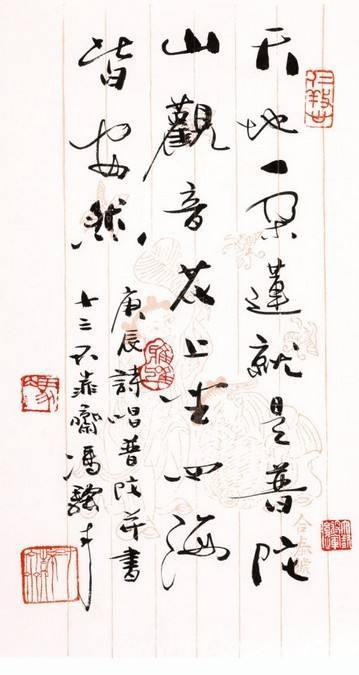 天地一朵蓮就是普陀
山觀音花上坐四海
皆安然
庚辰詩唱普陀并書
廿三不靠齋馮驗